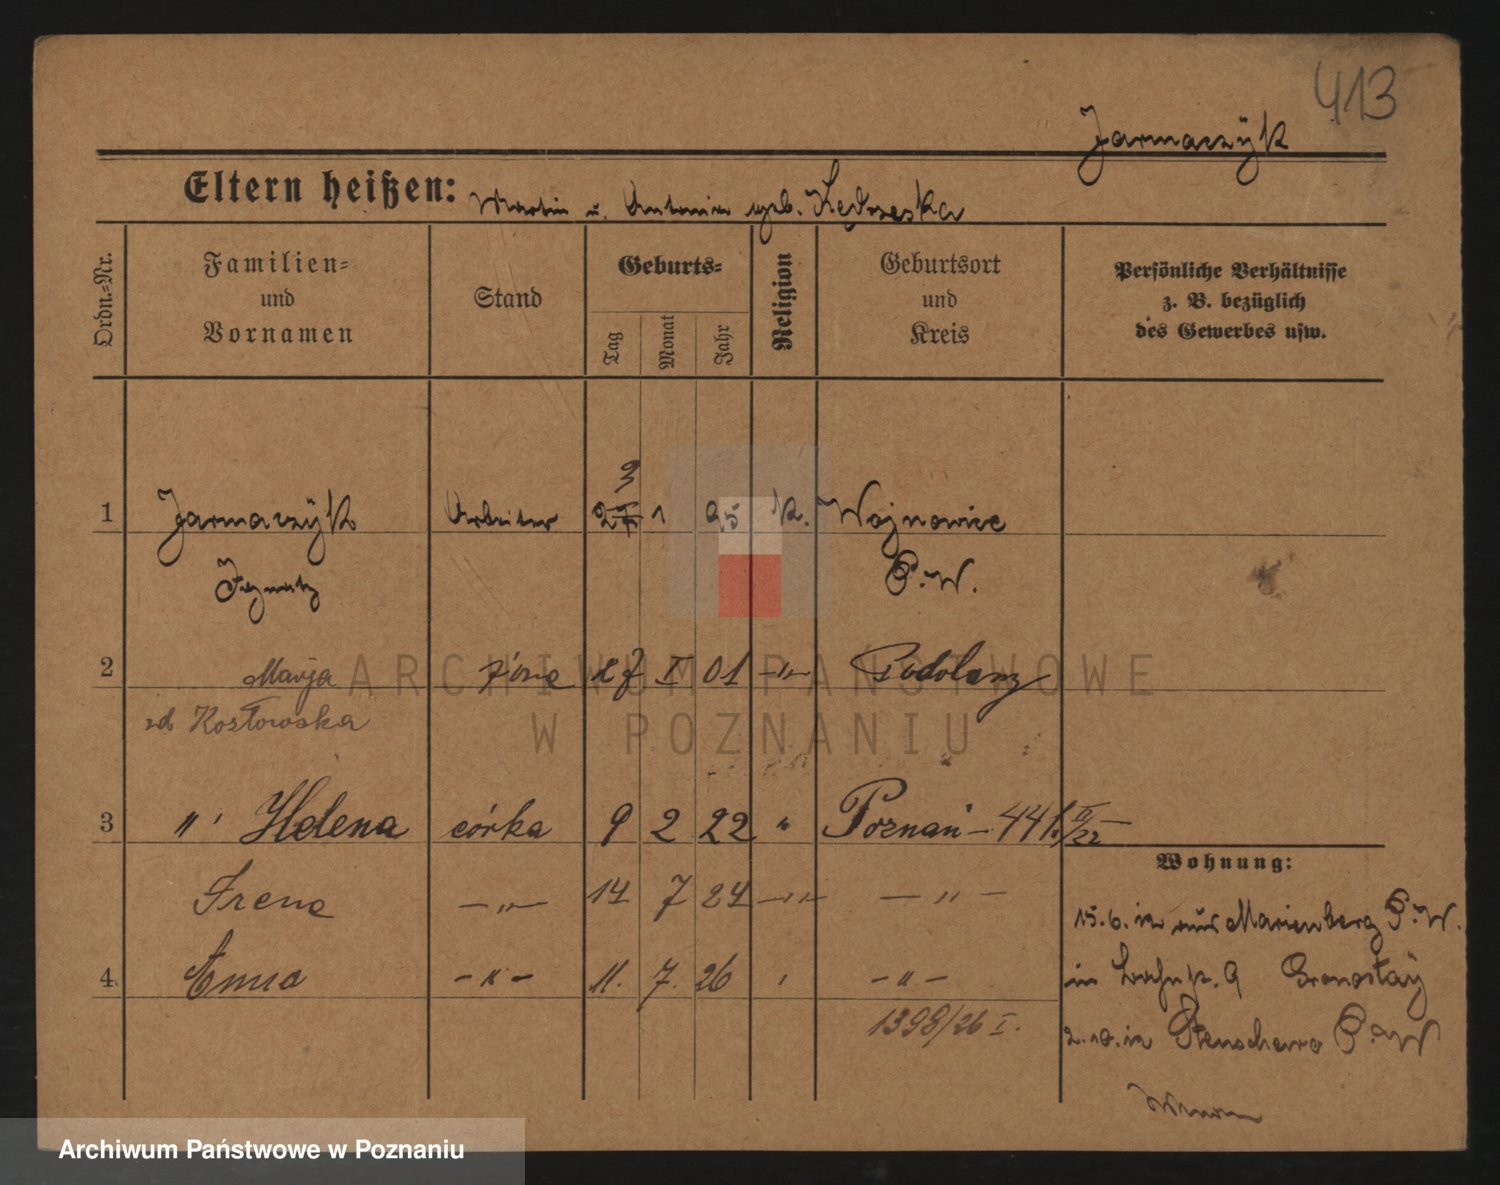 413
Jarmaczÿk
Eltern heißen: Martin u. Antonia geb. Kędzeska
Ordn.-Nr.
Familien-
und
Vornamen
Stand
Geburts-
Tag
Monat
Jahr
Religion
Geburtsort
und
Kreis
Persönliche Verhältnisse
z. B. bezüglich
des Gewerbes usw.
3
1 Jarmaczÿk Arbeiter 1 95 K. Wojnowice
Ignatz P.W.
2 Marja żona 27 I 01 -"- Podolany
zd Kozłowska
3 " Helena córka 9 2 22 " Poznań - 441
Wohnung:
Irena -"- 14 7 24 -"- -"-
15.6. aus Marienberg P.W.
4 Anna -"- 11. 7. 26 -"-
in 9 Gronostaÿ
1398/26 I.
2.10. in Stenschewo P.W
ARCHIWUM PAŃSTWOWE
W POZNANIU
Archiwum Państwowe w Poznaniu